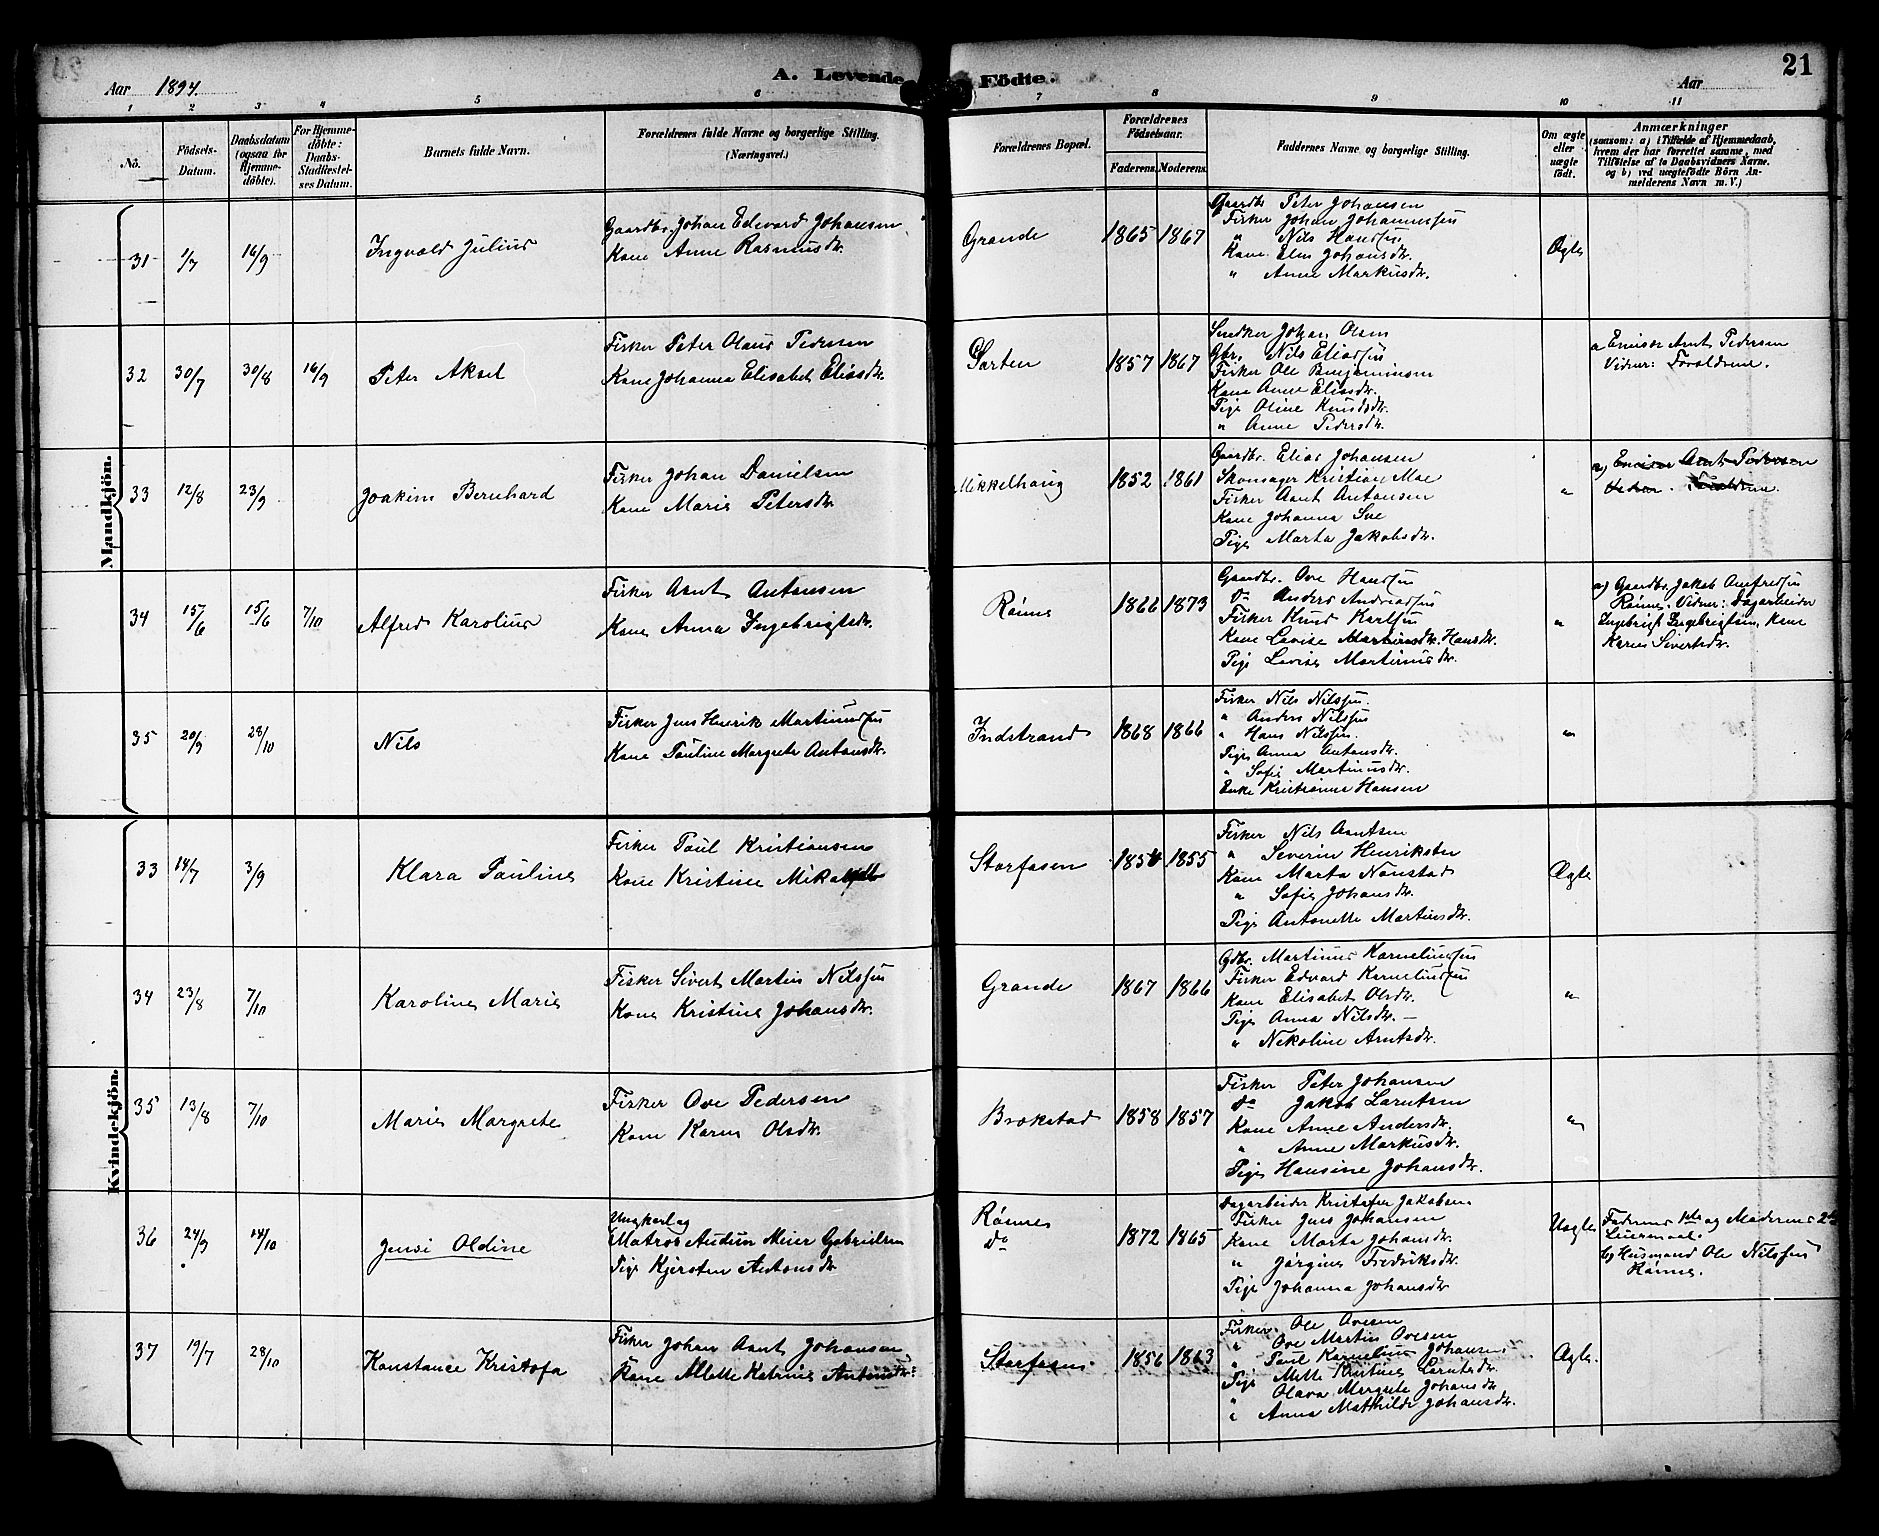 Aar 1894.
A. Levende Födte.
Aar
21
1 2 3 4 5 6 7 8 9 10 11
No.
Födsels-Datum.
Daabsdatum (ogsaa for Hjemme-döbte).
For Hjemme-döbte: Daabs-Stadfæstel-ses Datum.
Barnets fulde Navn.
Forældrenes fulde Navne og borgerlige Stilling. (Næringsvei.)
Forældrenes Bopæl.
Forældrenes Födselsaar.
Faderens. Moderens.
Faddernes Navne og borgerlige Stilling.
Om ægte eller uægte født.
Anmærkninger
(saasom: a) i Tilfælde af Hjemmedaab, hvem der har forrettet samme, med Tilføielse af to Daabsvidners Navne, og b) ved uægtefödte Börn Anmelderens Navn m. V.)
Mandkjön.
31 1/7 16/9 Ingvald Julius
Gaardbr. Johan Edevard Johansen
Kone Anne Rasmusdr.
Grande 1865 1867
Gaardbr Peter Johansen
Fisker Johan Johannessen
" Nils Hanssen
Kone Elen Johansdr.
" Anne Markusdr.
Ægte
32 30/7 30/8 16/9 Peter Aksel
Fisker Peter Olaus Pedersen
Kone Johanna Elisabet Eliasdr.
Garten 1857 1867
Snedker Johan Olsen
Gbr. Nils Eliassen
Fisker Ole Benjaminsen
Kone Anne Eliasdr.
Pige Oline Knudsdr.
" Anne Pedersdr.
a Emisær Arnt Pedersen
Vidner: Forældrene.
33 12/8 23/9 Joakim Bernhard
Fisker Johan Danielsen
Kone Marie Petersdr.
Mikkelhaug 1852 1861
Gaardbr. Elias Johansen
Skomager Kristian Moe
Fisker Arnt Antonsen
Kone Johanna
Pige Marta Jakobsdr.
"
a) Emisær Arnt Pedersen
Vidner. Forældrene.
34 15/6 15/6 7/10 Alfred Karolius
Fisker Arnt Antonsen
Kone Anna Ingebrigtsdr.
Rønne 1866 1873
Gaardbr. Ove Hanssen
Do Anders Andreassen
Fisker Knud Karlsen
Kone Lovise Martinusdr. Hansdr.
Pige Lovise Martinusdr.
"
a) Gaardbr. Jakob Arnfredsen
Rønne. Vidner: Dagarbeider
Ingebrigt Ingebrigtsen, Kone
Karen Sivertsdr.
35 20/9 28/10 Nils
Fisker Jens Henrik Martinussen
Kone Pauline Margrete Antonsdr.
Indstrand 1868 1866
Fisker Nils Nilssen.
" Anders Nilssen
" Hans Nilssen.
Pige Anna Antonsdr.
" Sofie Martinusdr.
Enke Kristianna Hansen
"
Kvindekjön.
33 14/7 3/9 Klara Pauline
Fisker Paul Kristiansen
Kone Kristine
Storfosen 1854 1855
Fisker Nils Arntsen
" Severin Henriksen
Kone Marta Nonstad
" Sofie Johansdr.
Pige Antonette Martinsdr.
Ægte
34 23/8 7/10 Karoline Marie
Fisker Sivert Martin Nilssen
Kone Kristine Johansdr.
Grande 1867 1866
Gdbr. Martinus Korneliussen
Fisker Edvard Korneliussen
Kone Elisabet Olsdr.
Pige Anna Nilsdr. —
" Nikoline Arntsdr.
"
35 13/8 7/10 Marie Margrete
Fisker Ove Pedersen
Kone Karen Olsdr.
Brækstad 1858 1857
Fisker Peter Johansen
Do Jakob Larntsen
Kone Anne Andersdr.
" Anne Markusdr.
Pige Hansine Johansdr.
"
36 24/9 14/10 Jensi Oldine
Ungkarl og
Matros Audun Meier Gabrielsen
Pige Kjersten Antonsdr.
Rønne
Do
1872 1865
Dagarbeider Kristofer Jakobsen
Fisker Jens Johansen
Kone Marta Johansdr.
" Jørgine Fredriksdr.
Pige Johanna Johansdr
Uægte
Faderens 1ste og Moderens 2det
Leiermaal.
b) Husmand Ole Nilssen
Rønne.
37 19/7 28/10 Konstance Kristofa
Fisker Johan Arnt Johansen
Kone Mette Katrine Antonsdr.
Storfosen 1856 1863
Fisker Ole Ovesen
" Ove Martin Ovesen
" Paul Kornelius Johansen
Pige Mette Kristine Larntsdr.
" Olava Margrete Johansdr
" Anna Mathilde Johansdr.
Ægte.